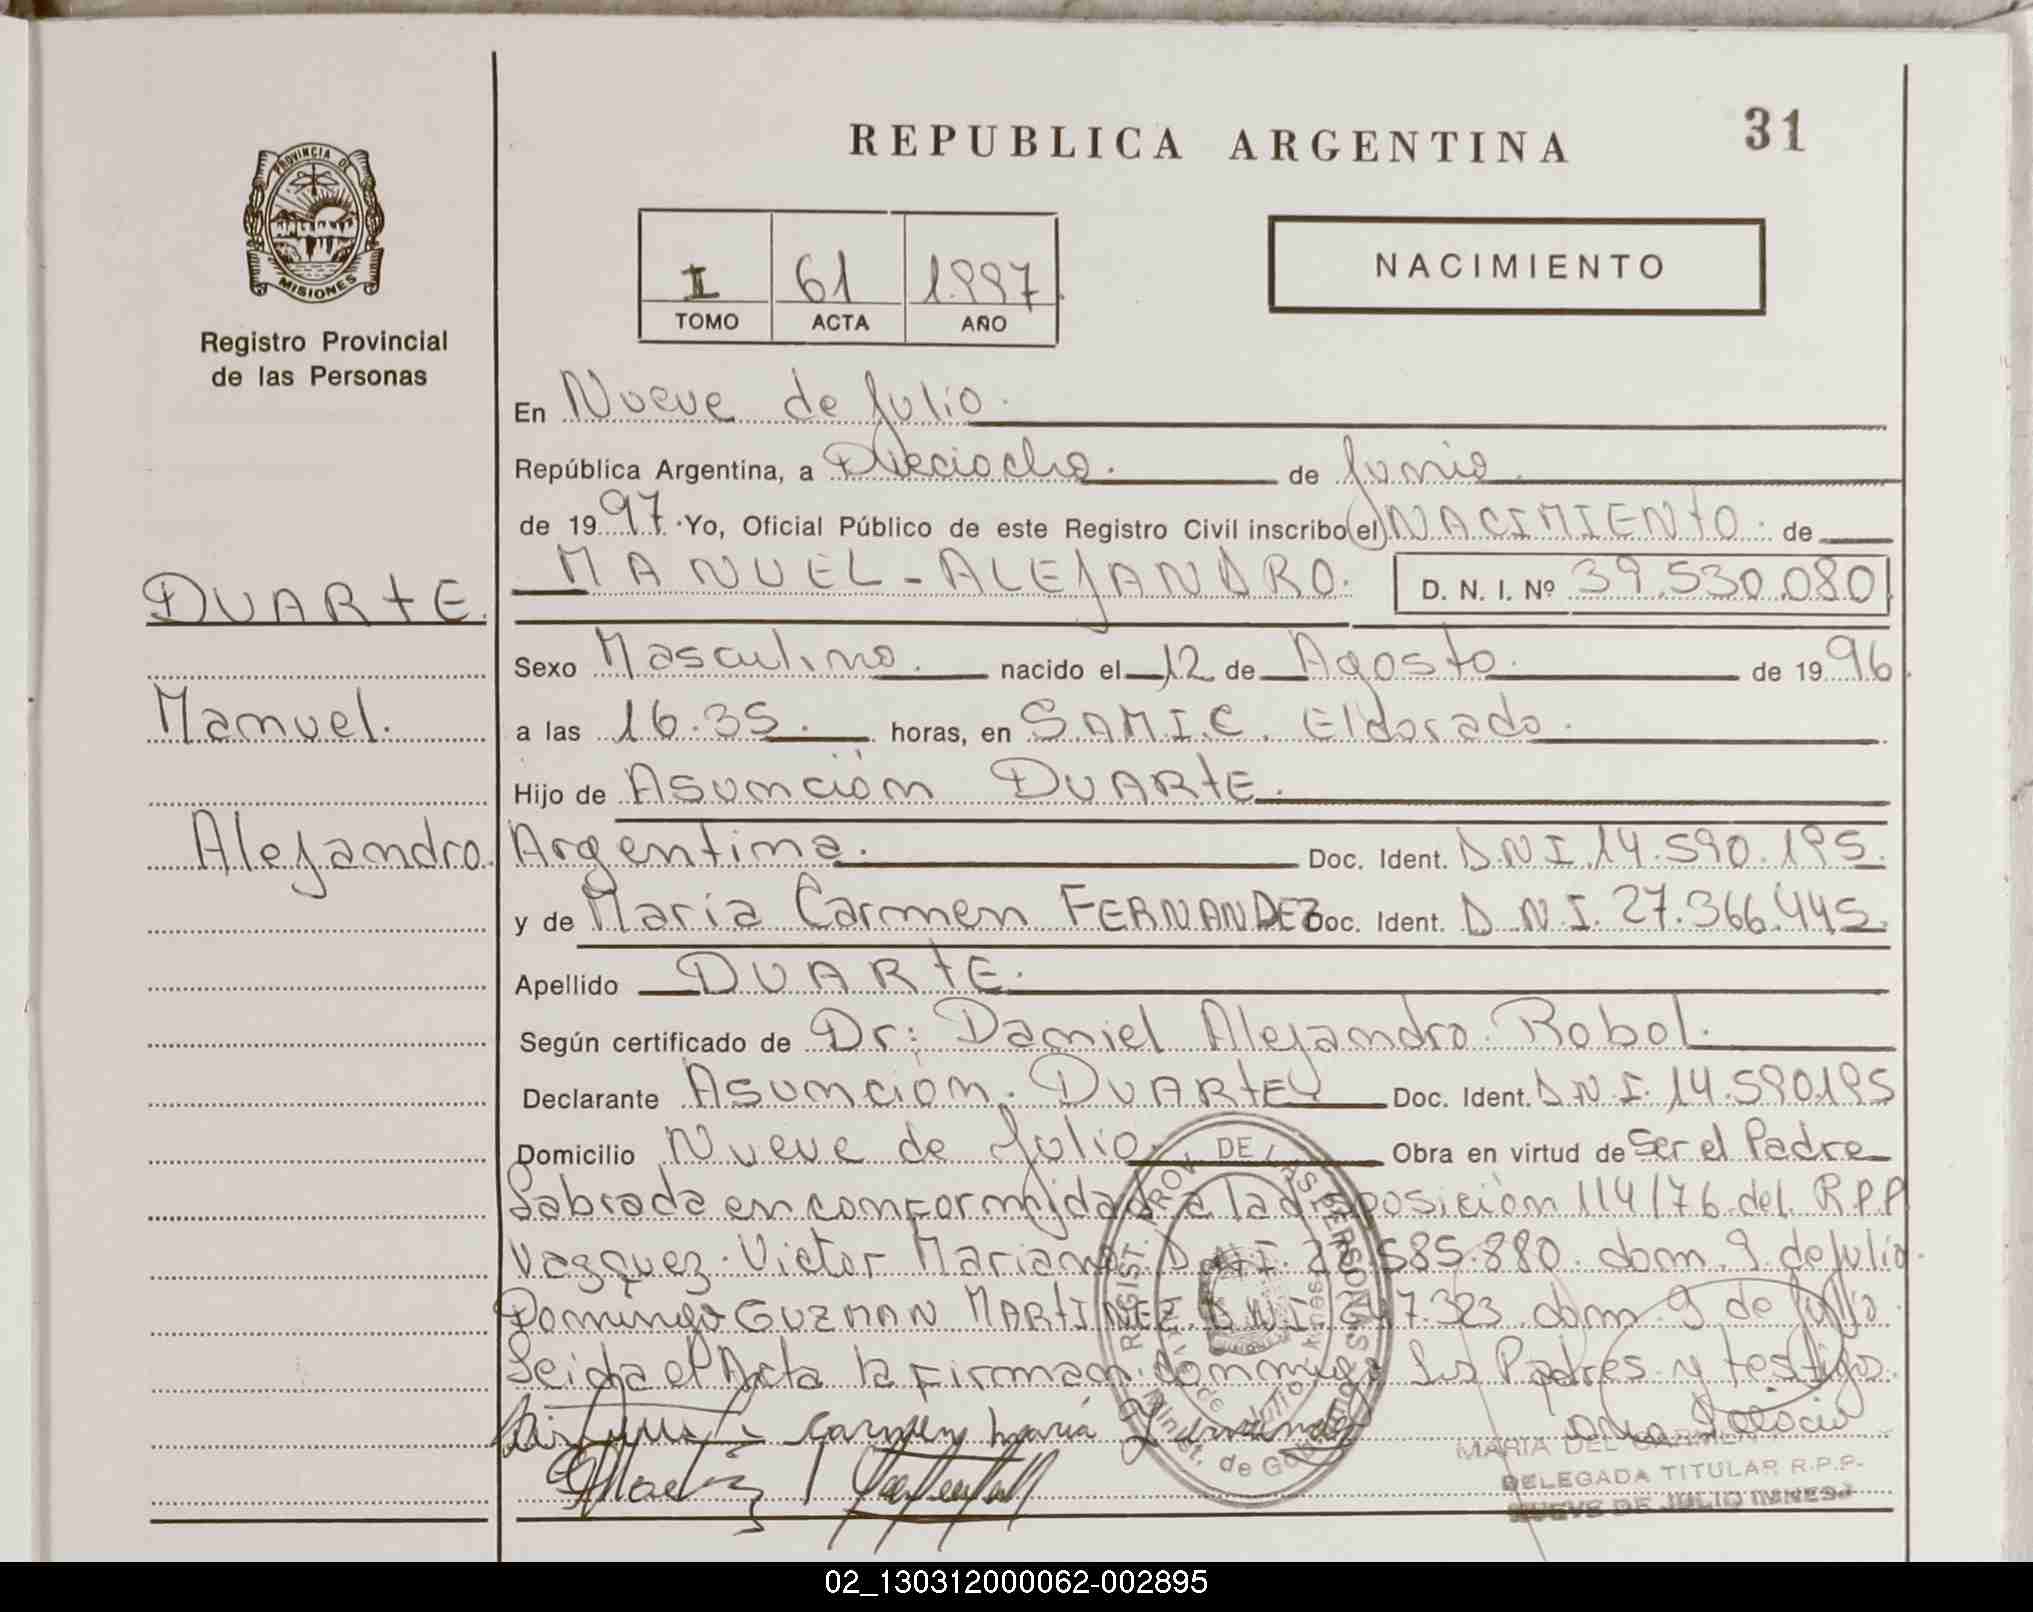 REPUBLICA ARGENTINA
31
PROVINCIA DE
MISIONES
Registro Provincial
de las Personas
I 61 1.997
TOMO ACTA AÑO
NACIMIENTO
En Nueve de Julio.
República Argentina, a Dieciocho. de Junio.
de 1997. Yo, Oficial Público de este Registro Civil inscribo (el) NACIMIENTO. de
DUARTE.
MANUEL - ALEJANDRO. D. N. I. Nº 39.530.080
Sexo Masculino. nacido el 12 de Agosto. de 1996
Manuel.
a las 16.35. horas, en SAMIC. Eldorado.
Hijo de Asunción DUARTE.
Alejandro.
Argentina. Doc. Ident. D.N.I. 14.590.195.
y de María Carmen FERNANDEZ Doc. Ident. D.N.I. 27.366.445.
Apellido DUARTE.
Según certificado de Dr: Daniel Alejandro Robol.
Declarante Asunción. DUARTE Doc. Ident. D.N.I. 14.590195
Domicilio Nueve de Julio. Obra en virtud de Ser el Padre
Labrada en conformidad a la disposición 114/76 del R.P.P
Vazquez. Victor Mariano. D.N.I. 585.880. dom. 9 de Julio
Domingo GUZMAN MARTINEZ. D.N.I. 7.323. dom. 9 de Julio.
Leida el Acta la firman conmigo Los Padres y testigos.
Carmen María
REGIST. PROV. DE LAS PERSONAS
Minist. de Gob
MARIA DEL CARMEN
DELEGADA TITULAR R.P.P.
NUEVE DE JULIO (MNES)
02_130312000062-002895